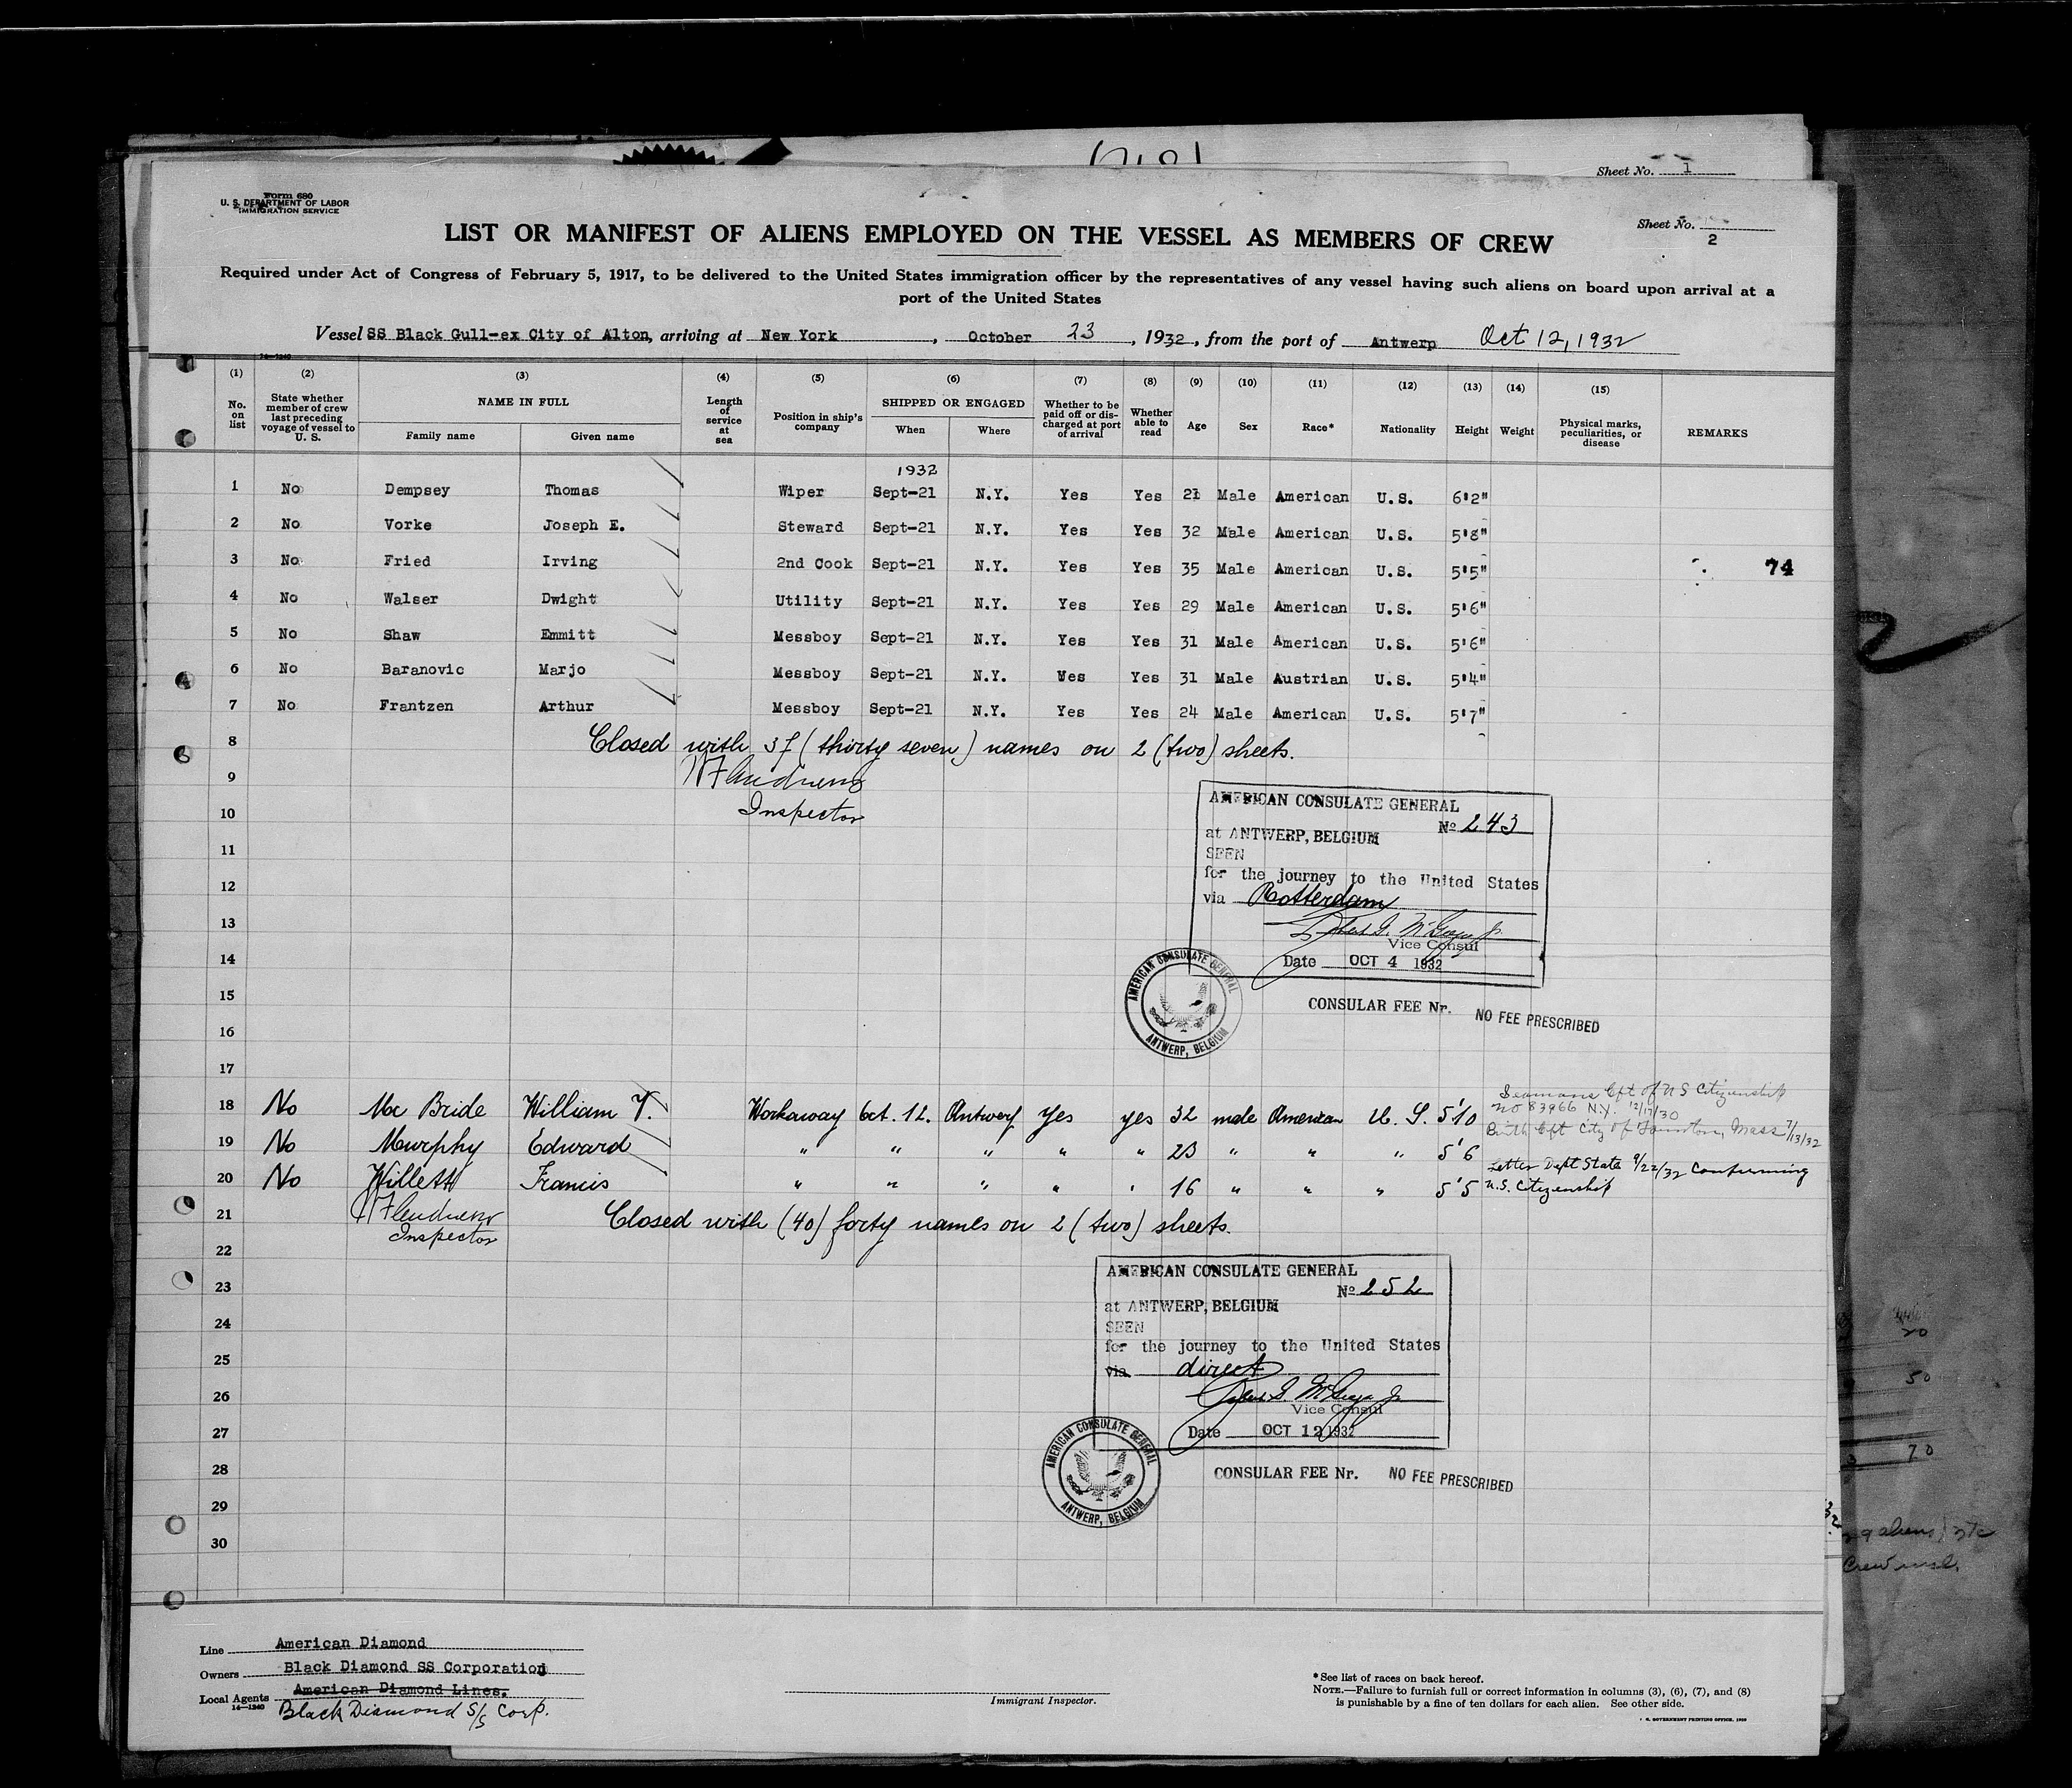 Sheet No. 1
Form 680
U. S. DEPARTMENT OF LABOR
IMMIGRATION SERVICE
Sheet No.
2
LIST OR MANIFEST OF ALIENS EMPLOYED ON THE VESSEL AS MEMBERS OF CREW
Required under Act of Congress of February 5, 1917, to be delivered to the United States immigration officer by the representatives of any vessel having such aliens on board upon arrival at a
port of the United States
Vessel SS Black Gull-ex City of Alton, arriving at New York, October 23, 1932, from the port of Antwerp Oct 12, 1932
14-1240
(1) (2) (3) (4) (5) (6) (7) (8) (9) (10) (11) (12) (13) (14) (15)
No. on list State whether member of crew last preceding voyage of vessel to U. S. NAME IN FULL Family name Given name Length of service at sea Position in ship's company SHIPPED OR ENGAGED When Where Whether to be paid off or discharged at port of arrival Whether able to read Age Sex Race* Nationality Height Weight Physical marks, peculiarities, or disease REMARKS
1932
1 No Dempsey Thomas Wiper Sept-21 N.Y. Yes Yes 21 Male American U.S. 6'2"
2 No Vorke Joseph E. Steward Sept-21 N.Y. Yes Yes 32 Male American U.S. 5'8"
3 No Fried Irving 2nd Cook Sept-21 N.Y. Yes Yes 35 Male American U.S. 5'5" 74
4 No Walser Dwight Utility Sept-21 N.Y. Yes Yes 29 Male American U.S. 5'6"
5 No Shaw Emmitt Messboy Sept-21 N.Y. Yes Yes 31 Male American U.S. 5'6"
6 No Baranovic Marjo Messboy Sept-21 N.Y. Yes Yes 31 Male Austrian U.S. 5'4"
7 No Frantzen Arthur Messboy Sept-21 N.Y. Yes Yes 24 Male American U.S. 5'7"
8 Closed with 37 (thirty seven) names on 2 (two) sheets.
9
10 Inspector
AMERICAN CONSULATE GENERAL
No 243
at ANTWERP, BELGIUM
11
SEEN
12
for the journey to the United States
via Rotterdam
13
Vice Consul
14
Date OCT 4 1932
AMERICAN CONSULATE GENERAL
ANTWERP, BELGIUM
15
CONSULAR FEE Nr. NO FEE PRESCRIBED
16
17
18 No Mc Bride William T. Workaway Oct. 12. Antwerp Yes yes 32 male American U. S. 5'10 Seamans Cft of U S Citizenship
no 83966 N.Y. 12/17/30
19 No Murphy Edward " " " " " 23 " " " 5'6 Birth Cft City of Mass 7/13/32
20 No Willett Francis " " " " " 16 " " " 5'5 Letter Dept State 9/22/32 Confirming
U.S. Citizenship
21 Closed with (40) forty names on 2 (two) sheets.
Inspector
22
AMERICAN CONSULATE GENERAL
23
No 252
at ANTWERP, BELGIUM
24
SEEN
for the journey to the United States
25
via direct
26
Vice Consul
27
Date OCT 12 1932
AMERICAN CONSULATE GENERAL
ANTWERP, BELGIUM
28
CONSULAR FEE Nr. NO FEE PRESCRIBED
29
30
Line American Diamond
Owners Black Diamond SS Corporation
Local Agents American Diamond Lines.
14-1240
Black Diamond S/S Corp.
Immigrant Inspector.
*See list of races on back hereof.
NOTE.—Failure to furnish full or correct information in columns (3), (6), (7), and (8)
is punishable by a fine of ten dollars for each alien. See other side.
20
50
70